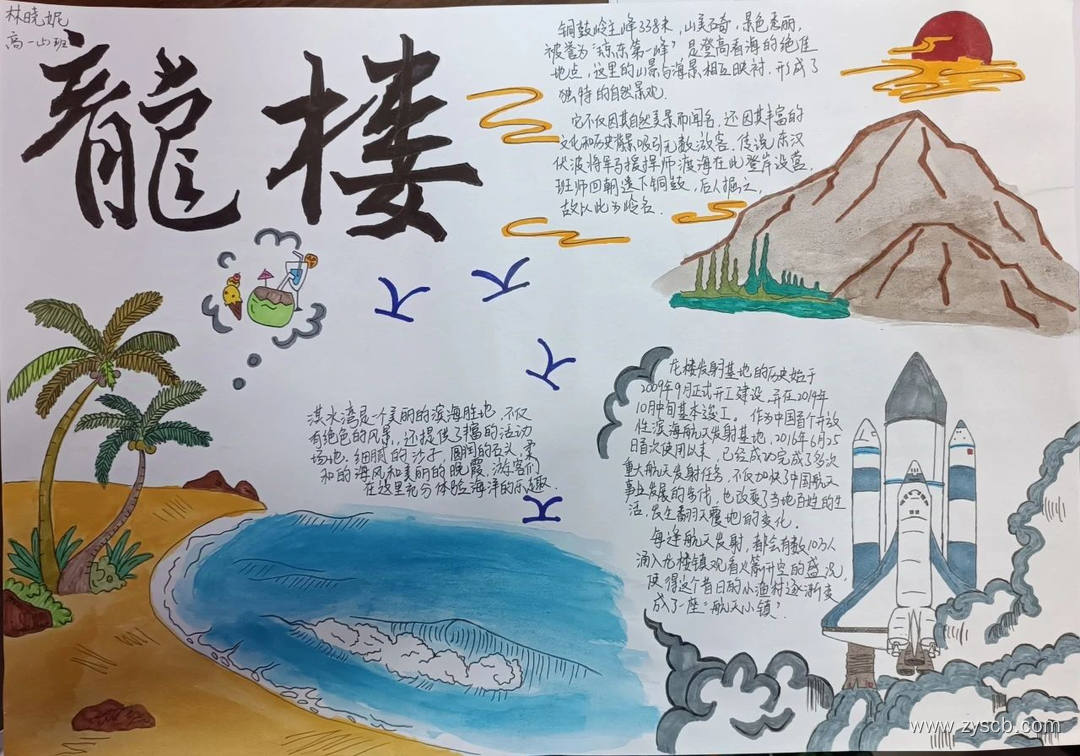 林晓妮
高一山班
龍楼
铜鼓岭主峰338米，山美石奇，景色秀丽，
被誉为“琼东第一峰”是登高看海的绝佳
地点，这里的山景与海景相互映衬，形成了
独特的自然景观.
它不仅因其自然美景而闻名，还因其丰富的
文化和历史背景吸引无数游客.传说东汉
伏波将军马援挥师渡海在此登岸设营，
班师回朝遗下铜鼓，后人掘之，
故以此为岭名.
淇水湾是一个美丽的滨海胜地，不仅
有绝色的风景，还提供了丰富的活动
场地.细腻的沙子，圆润的石头，柔
和的海风和美丽的晚霞，游客们
在这里充分体验海洋的乐趣.
龙楼发射基地的历史始于
2009年9月正式开工建设，并在2014年
10月中旬基本竣工。作为中国首个开放
性滨海航天发射基地，2016年6月25
日首次使用以来，已经成功完成了多次
重大航天发射任务，不仅加快了中国航天
事业发展的步伐，也改变了当地百姓的生
活，发生翻天覆地的变化.
每逢航天发射，都会有数10万人
涌入龙楼镇观看火箭升空的盛况，
使得这个昔日的小渔村逐渐变
成了一座“航天小镇”
www.zyscb.com